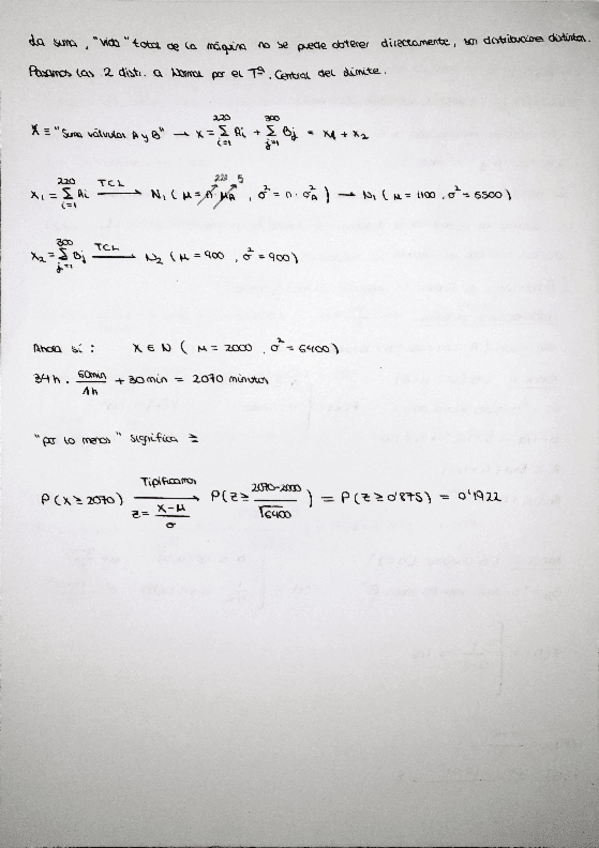 La suma, "vida" total de la máquina no se puede obtener directamente, son distribuciones distintas.
Pasamos las 2 distr. a Normal por el Tª. Central del Límite.
X ≡ "Suma válvulas A y B" → X = ∑_{i=1}^{220} Ai + ∑_{j=1}^{300} Bj = X1 + X2
X₁ = ∑_{i=1}^{220} Ai —TCL→ N₁ ( μ = n^{220} · μ_A^{5} , σ² = n · σ²_A ) → N₁ ( μ = 1100 , σ² = 5500 )
X₂ = ∑_{j=1}^{300} Bj —TCL→ N₂ ( μ = 900 , σ² = 900 )
Ahora sí : X ∈ N ( μ = 2000 , σ² = 6400 )
34h · 60min/1h + 30min = 2070 minutos
"por lo menos" significa ≥
P(X ≥ 2070) —Tipificamos Z = (X-μ)/σ→ P(Z ≥ (2070-2000)/√6400) = P(Z ≥ 0'875) = 0'1922